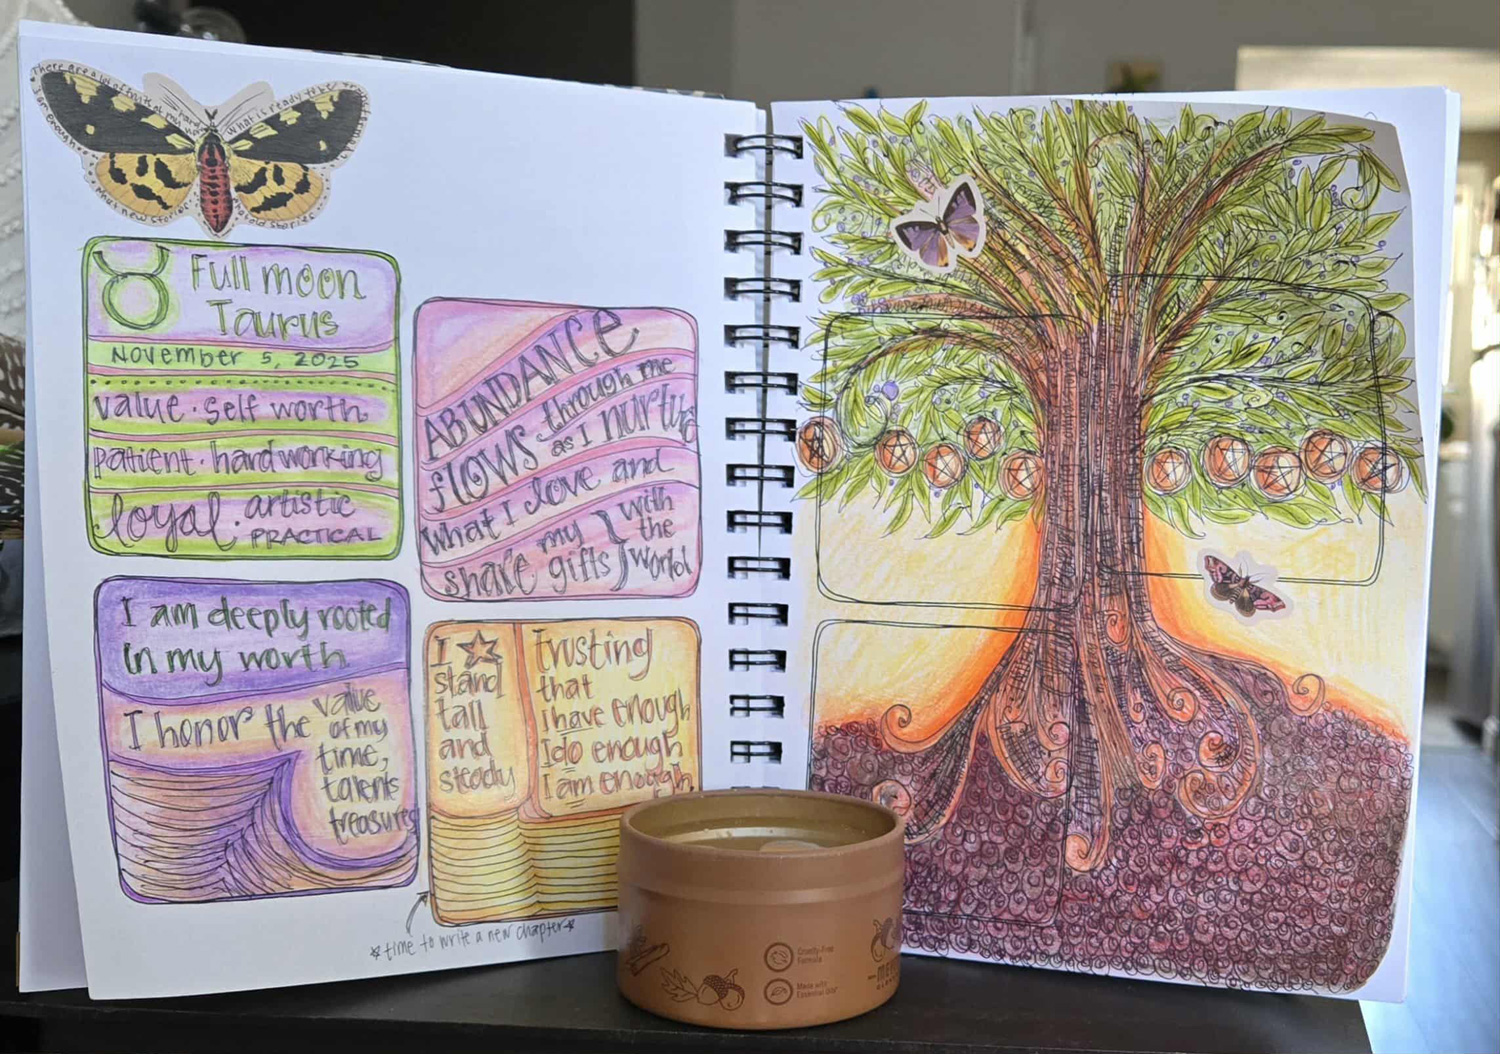 There are a lot of fruits of
what is ready to be
I am enough
new stories
old stories
Full moon
Taurus
November 5, 2025
value · self worth
patient · hardworking
loyal · artistic
PRACTICAL
ABUNDANCE
flows through me
as I nurture
what I love and
share my gifts } with
the
world
I am deeply rooted
in my worth
I honor the value
of my
time,
talents
treasures
I ☆
stand
tall
and
steady
trusting
that
I have enough
I do enough
I am enough.
☆ time to write a new chapter ☆
Cruelty-Free
Formula
Made with
Essential Oils*